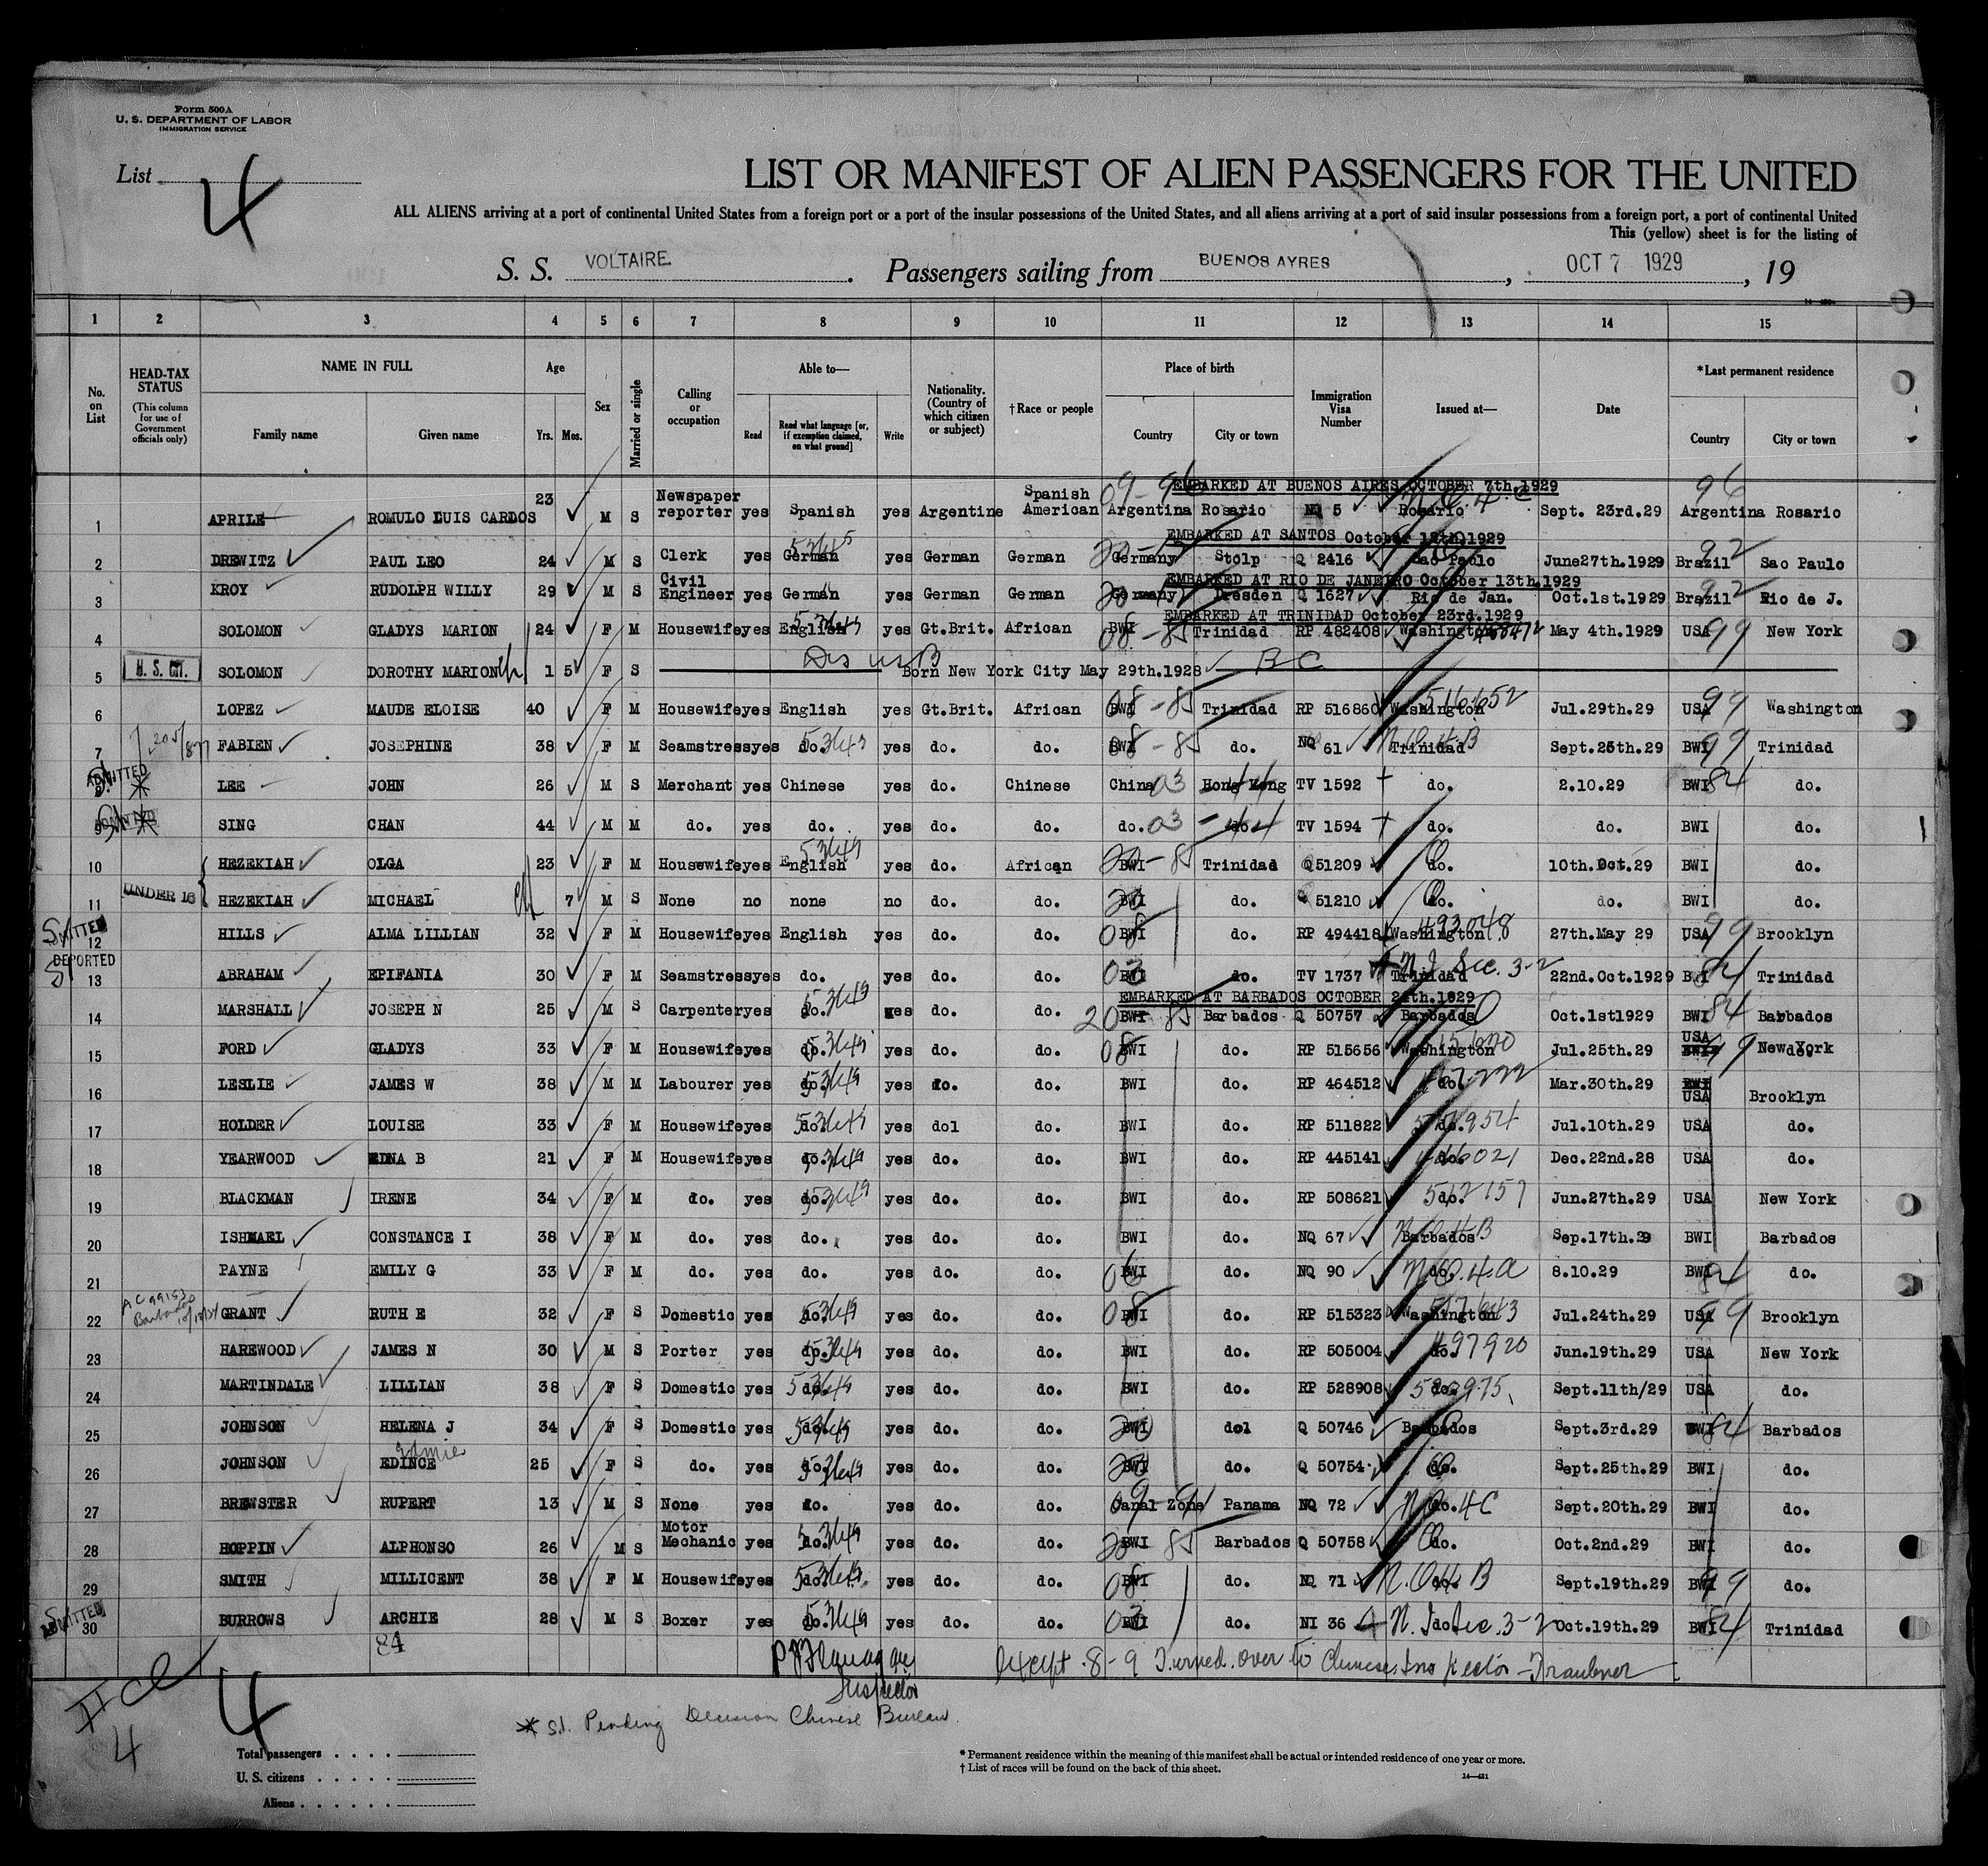 Form 500A
U. S. DEPARTMENT OF LABOR
IMMIGRATION SERVICE
List 4
LIST OR MANIFEST OF ALIEN PASSENGERS FOR THE UNITED
ALL ALIENS arriving at a port of continental United States from a foreign port or a port of the insular possessions of the United States, and all aliens arriving at a port of said insular possessions from a foreign port, a port of continental United
This (yellow) sheet is for the listing of
S. S. VOLTAIRE. Passengers sailing from BUENOS AYRES, OCT 7 1929, 19
1 2 3 4 5 6 7 8 9 10 11 12 13 14 15
No. on List
HEAD-TAX STATUS (This column for use of Government officials only)
NAME IN FULL Family name Given name
Age Yrs. Mos.
Sex
Married or single
Calling or occupation
Able to— Read Read what language [or, if exemption claimed, on what ground] Write
Nationality. (Country of which citizen or subject)
†Race or people
Place of birth Country City or town
Immigration Visa Number
Issued at—
Date
*Last permanent residence Country City or town
EMBARKED AT BUENOS AIRES OCTOBER 7th.1929
1 APRILE ROMULO LUIS CARDOS 23 M S Newspaper reporter yes Spanish yes Argentine Spanish American Argentina Rosario NQ 5 Rosario Sept. 23rd.29 Argentina Rosario
EMBARKED AT SANTOS October 12th.1929
2 DREWITZ PAUL LEO 24 M S Clerk yes German yes German German Germany Stolp Q 2416 Sao Paolo June27th.1929 Brazil Sao Paulo
EMBARKED AT RIO DE JANEIRO October 13th.1929
3 KROY RUDOLPH WILLY 29 M S Civil Engineer yes German yes German German Germany Dresden Q 1627 Rio de Jan. Oct.1st.1929 Brazil Rio de J.
EMBARKED AT TRINIDAD October 23rd.1929
4 SOLOMON GLADYS MARION 24 F M Housewife yes English yes Gt.Brit. African BWI Trinidad RP 482408 Washington May 4th.1929 USA New York
5 U. S. CIT. SOLOMON DOROTHY MARION 1 5 F S Born New York City May 29th.1928 B C
6 LOPEZ MAUDE ELOISE 40 F M Housewife yes English yes Gt.Brit. African BWI Trinidad RP 516860 Washington 516652 Jul.29th.29 USA Washington
7 FABIEN JOSEPHINE 38 F M Seamstress yes do. yes do. do. BWI do. NQ 61 Trinidad Sept.25th.29 BWI Trinidad
8 ADMITTED LEE JOHN 26 M S Merchant yes Chinese yes do. Chinese China Hong Kong TV 1592 do. 2.10.29 BWI do.
9 SING CHAN 44 M M do. yes do. yes do. do. do. do. TV 1594 do. do. BWI do.
10 HEZEKIAH OLGA 23 F M Housewife yes English yes do. African BWI Trinidad Q51209 do. 10th.Oct.29 BWI do.
11 UNDER 16 HEZEKIAH MICHAEL 7 M S None no none no do. do. BWI do. Q 51210 do. do. BWI do.
12 ADMITTED HILLS ALMA LILLIAN 32 F M Housewife yes English yes do. do. BWI do. RP 494418 Washington 493048 27th.May 29 USA Brooklyn
13 DEPORTED ABRAHAM EPIFANIA 30 F M Seamstress yes do. yes do. do. BWI do. TV 1737 Trinidad N.I Sec. 3-2 22nd.Oct.1929 BWI Trinidad
EMBARKED AT BARBADOS OCTOBER 24th.1929
14 MARSHALL JOSEPH N 25 M S Carpenter yes do. yes do. do. BWI Barbados Q 50757 Barbados Oct.1st1929 BWI Barbados
15 FORD GLADYS 33 F M Housewife yes do. yes do. do. BWI do. RP 515656 Washington Jul.25th.29 USA New York
16 LESLIE JAMES W 38 M M Labourer yes do. yes do. do. BWI do. RP 464512 do. Mar.30th.29 BWI USA Brooklyn
17 HOLDER LOUISE 33 F M Housewife yes do. yes dol do. BWI do. RP 511822 do. Jul.10th.29 USA do.
18 YEARWOOD EDNA B 21 F M Housewife yes do. yes do. do. BWI do. RP 445141 do. Dec.22nd.28 USA do.
19 BLACKMAN IRENE 34 F M do. yes do. yes do. do. BWI do. RP 508621 do. 512157 Jun.27th.29 USA New York
20 ISHMAEL CONSTANCE I 38 F M do. yes do. yes do. do. BWI do. NQ 67 Barbados Sep.17th.29 BWI Barbados
21 PAYNE EMILY G 33 F M do. yes do. yes do. do. BWI do. NQ 90 do. 8.10.29 BWI do.
22 GRANT RUTH E 32 F S Domestic yes do. yes do. do. BWI do. RP 515323 Washington Jul.24th.29 USA Brooklyn
23 HAREWOOD JAMES N 30 M S Porter yes do. yes do. do. BWI do. RP 505004 do. 497920 Jun.19th.29 USA New York
24 MARTINDALE LILLIAN 38 F S Domestic yes do. yes do. do. BWI do. RP 528908 do. Sept.11th/29 USA do.
25 JOHNSON HELENA J 34 F S Domestic yes do. yes do. do. BWI dol Q 50746 Barbados Sept.3rd.29 BWI Barbados
26 JOHNSON EDINCE 25 F S do. yes do. yes do. do. BWI do. Q 50754 do. Sept.25th.29 BWI do.
27 BREWSTER RUPERT 13 M S None yes do. yes do. do. Canal Zone Panama NQ 72 do. Sept.20th.29 BWI do.
28 HOPPIN ALPHONSO 26 M S Motor Mechanic yes do. yes do. do. BWI Barbados Q 50758 do. Oct.2nd.29 BWI do.
29 SMITH MILLICENT 38 F M Housewife yes do. yes do. do. BWI do. NQ 71 do. Sept.19th.29 BWI do.
30 ADMITTED BURROWS ARCHIE 28 M S Boxer yes do. yes do. do. BWI do. NI 36 do. N. I Sec. 3-2 Oct.19th.29 BWI Trinidad
84
Inspector
except 8-9 Turned over to Chinese Inspector - Traubner
4
4
* S.I. Pending Decision Chinese Bureau.
Total passengers
U. S. citizens
Aliens
* Permanent residence within the meaning of this manifest shall be actual or intended residence of one year or more.
† List of races will be found on the back of this sheet.
14—431